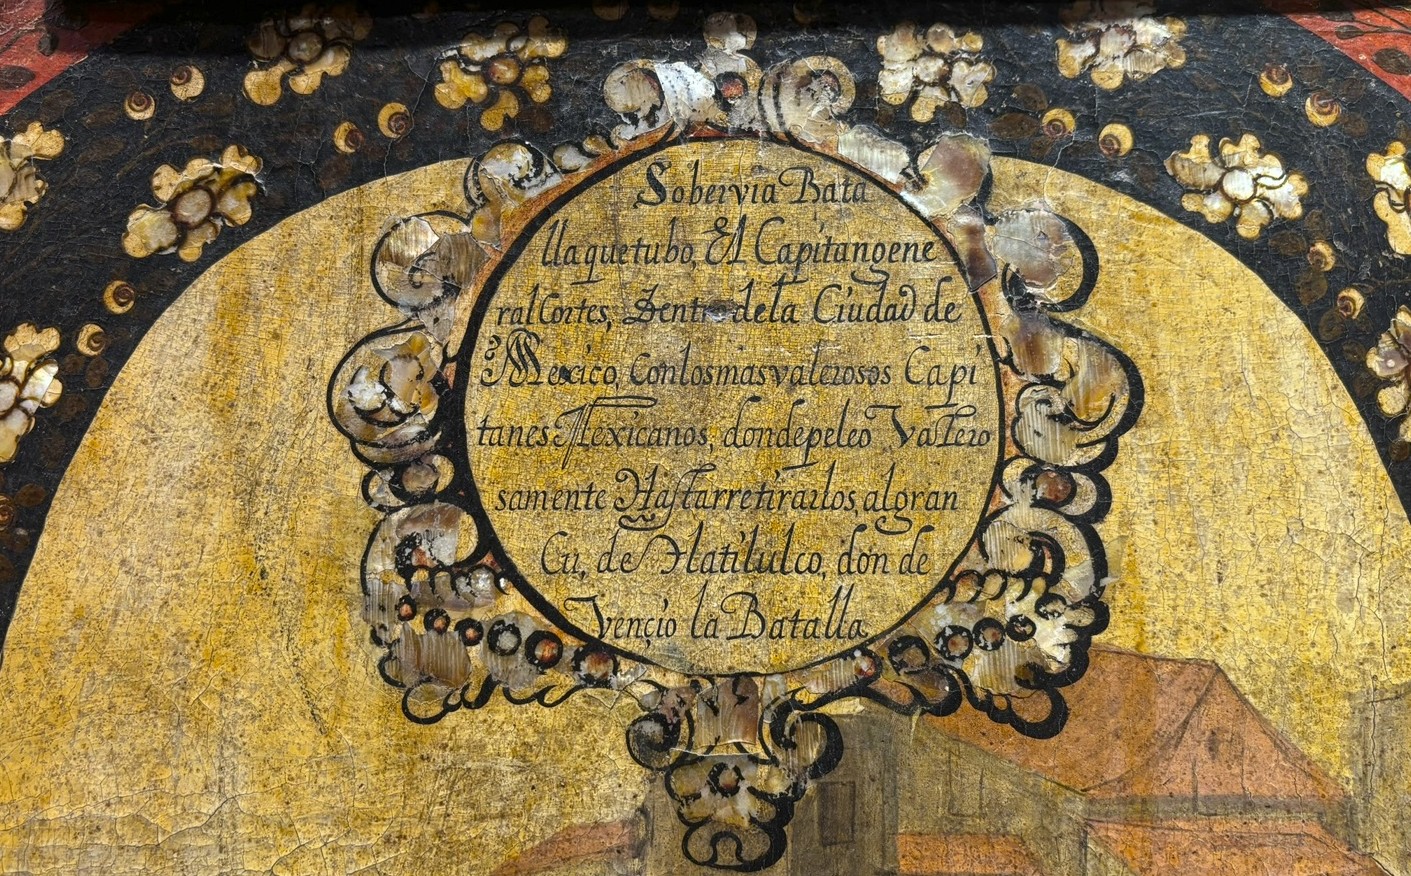 Sobervia Bata
lla quetubo, El Capitan gene
ral Cortes, Dentro dela Ciudad de
Mexico, Con los mas valerosos Capi
tanes Mexicanos, donde peleo Valero
samente Hasta rretirarlos, al gran
Cu, de Tlatilulco, don de
Vençio la Batalla